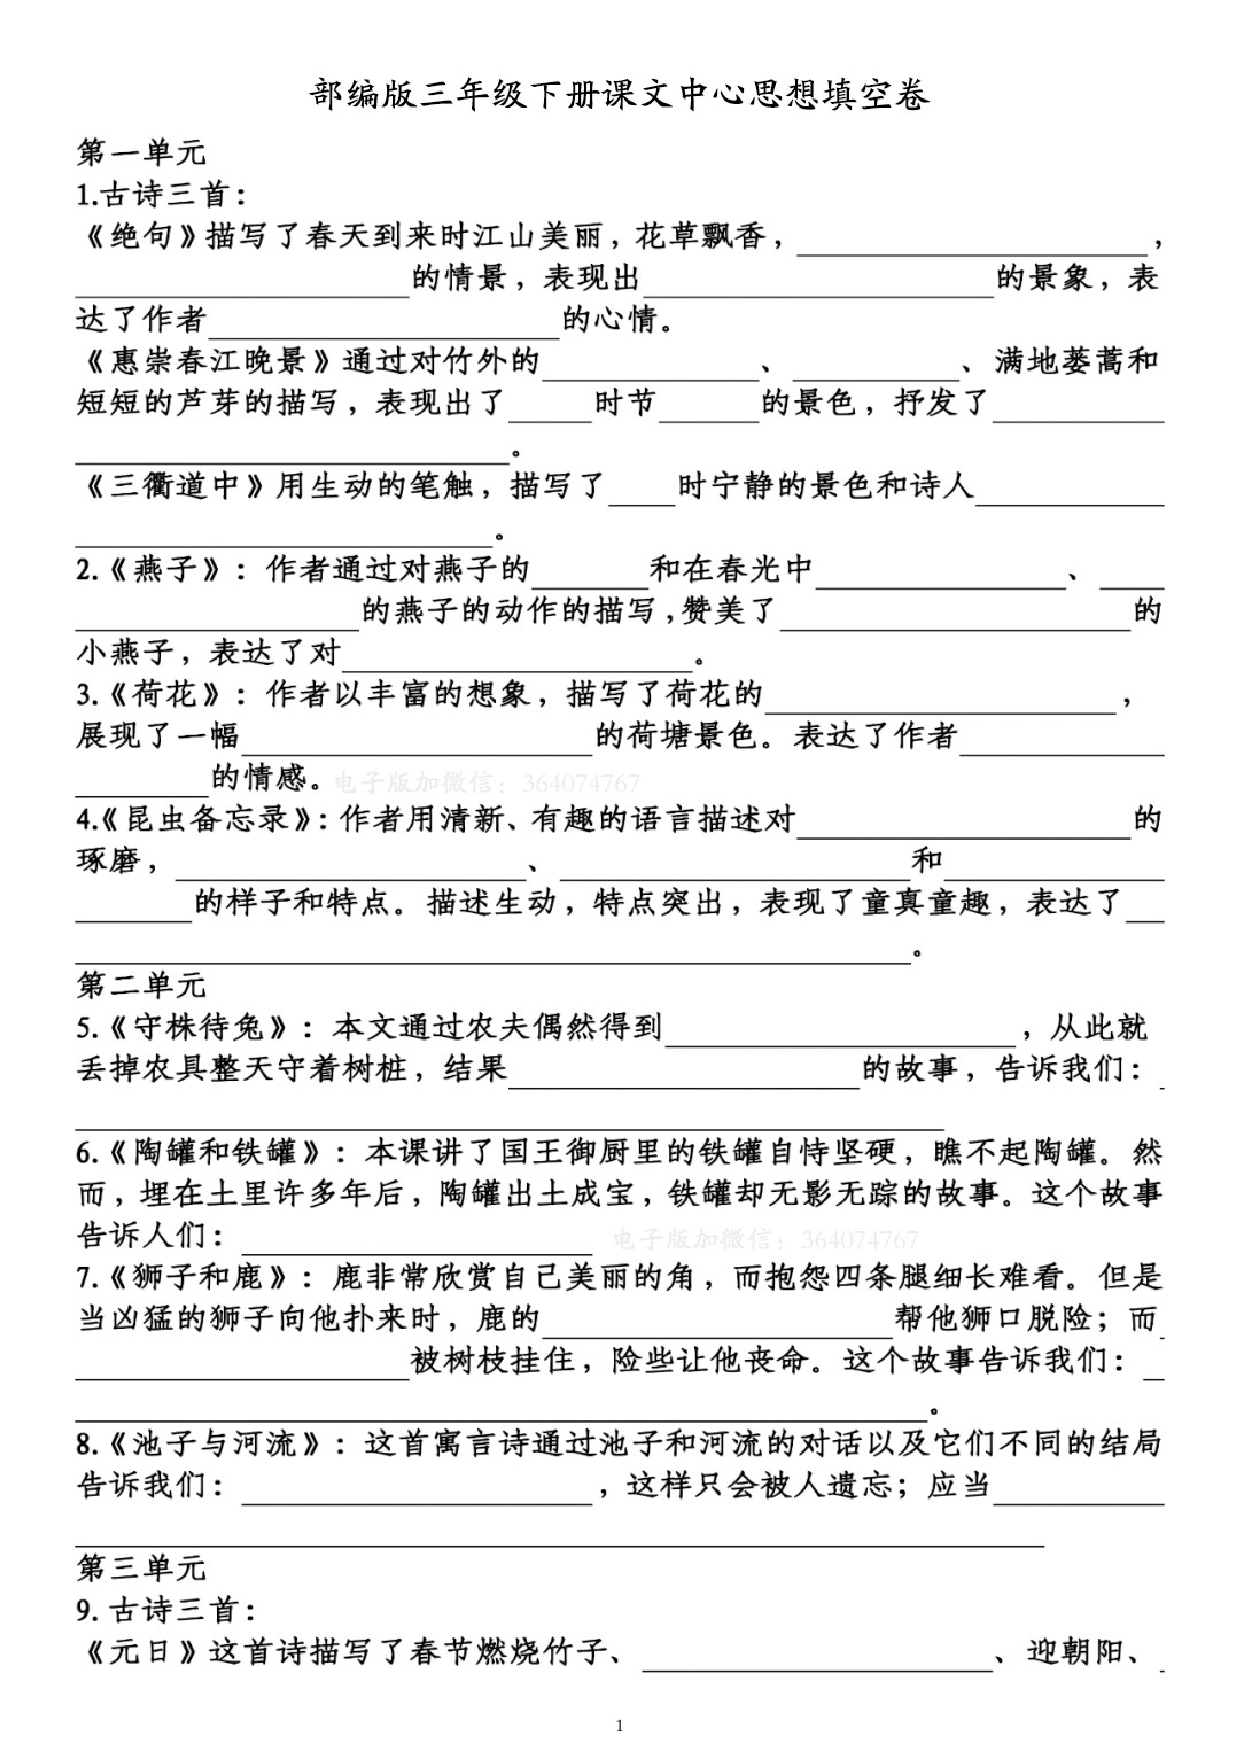 部编版三年级下册课文中心思想填空卷
第一单元
1.古诗三首：
《绝句》描写了春天到来时江山美丽，花草飘香，____，
____的情景，表现出____的景象，表
达了作者____的心情。
《惠崇春江晚景》通过对竹外的____、____、满地蒌蒿和
短短的芦芽的描写，表现出了____时节____的景色，抒发了____
____。
《三衢道中》用生动的笔触，描写了____时宁静的景色和诗人____
____。
2.《燕子》：作者通过对燕子的____和在春光中____、____
____的燕子的动作的描写,赞美了____的
小燕子，表达了对____。
3.《荷花》：作者以丰富的想象，描写了荷花的____，
展现了一幅____的荷塘景色。表达了作者____
____的情感。电子版加微信：364074767
4.《昆虫备忘录》：作者用清新、有趣的语言描述对____的
琢磨，____、____和____
____的样子和特点。描述生动，特点突出，表现了童真童趣，表达了____
____。
第二单元
5.《守株待兔》：本文通过农夫偶然得到____，从此就
丢掉农具整天守着树桩，结果____的故事，告诉我们：____
____
6.《陶罐和铁罐》：本课讲了国王御厨里的铁罐自恃坚硬，瞧不起陶罐。然
而，埋在土里许多年后，陶罐出土成宝，铁罐却无影无踪的故事。这个故事
告诉人们：____ 电子版加微信：364074767
7.《狮子和鹿》：鹿非常欣赏自己美丽的角，而抱怨四条腿细长难看。但是
当凶猛的狮子向他扑来时，鹿的____帮他狮口脱险；而____
____被树枝挂住，险些让他丧命。这个故事告诉我们：____
____。
8.《池子与河流》：这首寓言诗通过池子和河流的对话以及它们不同的结局
告诉我们：____，这样只会被人遗忘；应当____
____
第三单元
9. 古诗三首：
《元日》这首诗描写了春节燃烧竹子、____、迎朝阳、____
1